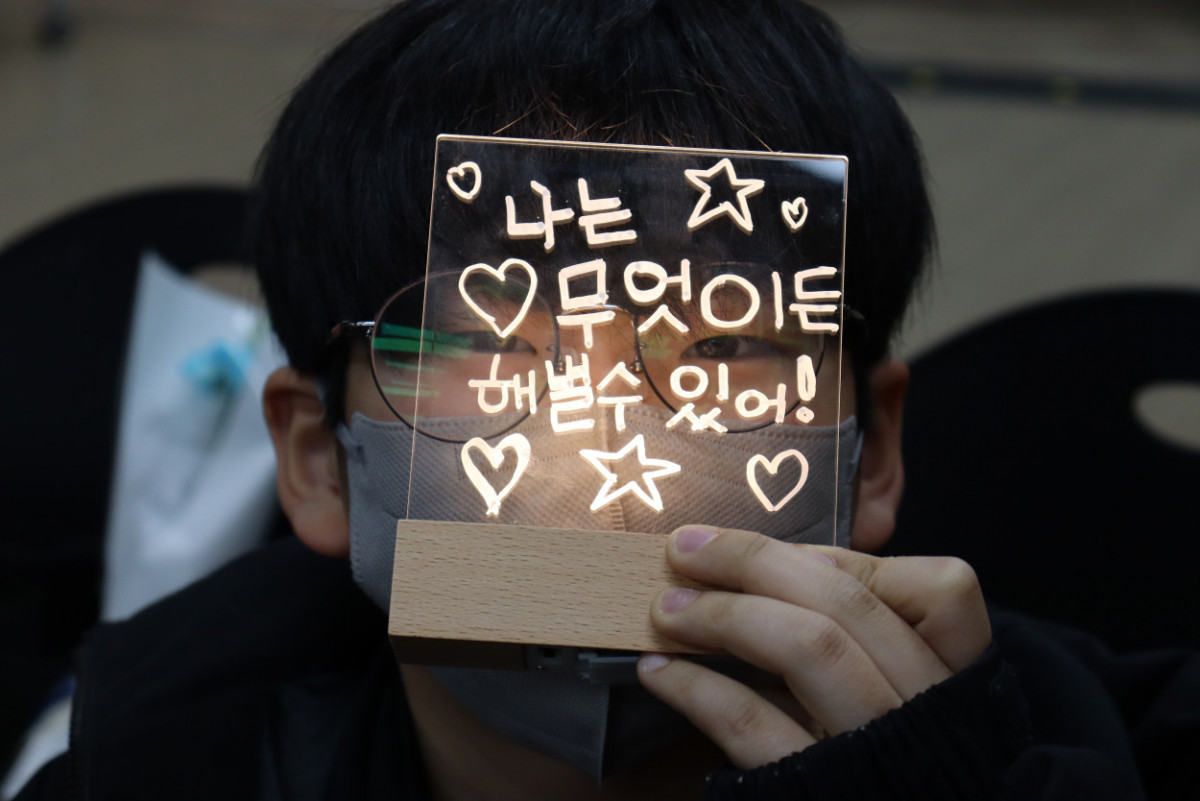 나는
무엇이든
해낼수있어!